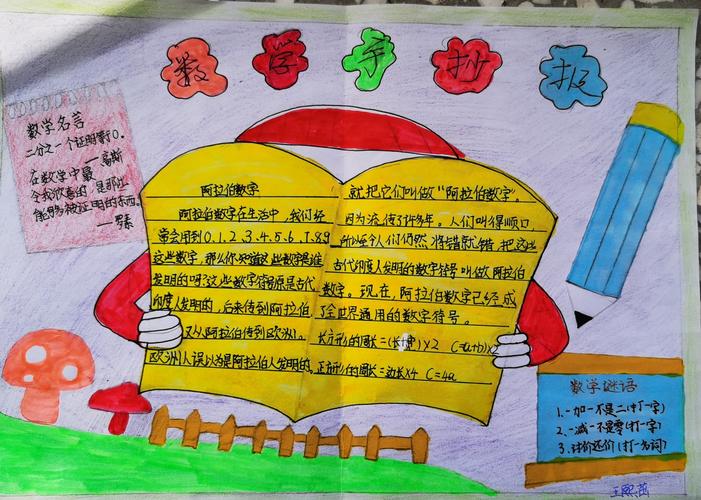 数学手抄报
数学名言
二分之一个证明等于0。
——高斯
在数学中最
令我欣喜的是那些
能够被证明的东西。
——罗素
阿拉伯数字
阿拉伯数字在生活中，我们经
常会用到0.1.2.3.4.5.6.7.8.9
这些数字，那么你知道这些数字是谁
发明的吗？这些数字符号原是古代
印度人发明的，后来传到阿拉伯，
又从阿拉伯传到欧洲。
欧洲人误以为是阿拉伯人发明的，
就把它们叫做“阿拉伯数字”。
因为流传了许多年。人们叫得顺口，
所以至今人们仍然将错就错，把这些
古代印度人发明的数字符号叫做阿拉伯
数字。现在，阿拉伯数字已经成
了全世界通用的数字符号。
长方形的周长=(长+宽)×2 C=(a+b)×2
正方形的周长=边长×4 C=4a
数学谜语
1.一加一不是二(打一字)
2.一减一不是零(打一字)
3.讨价还价(打一名词)